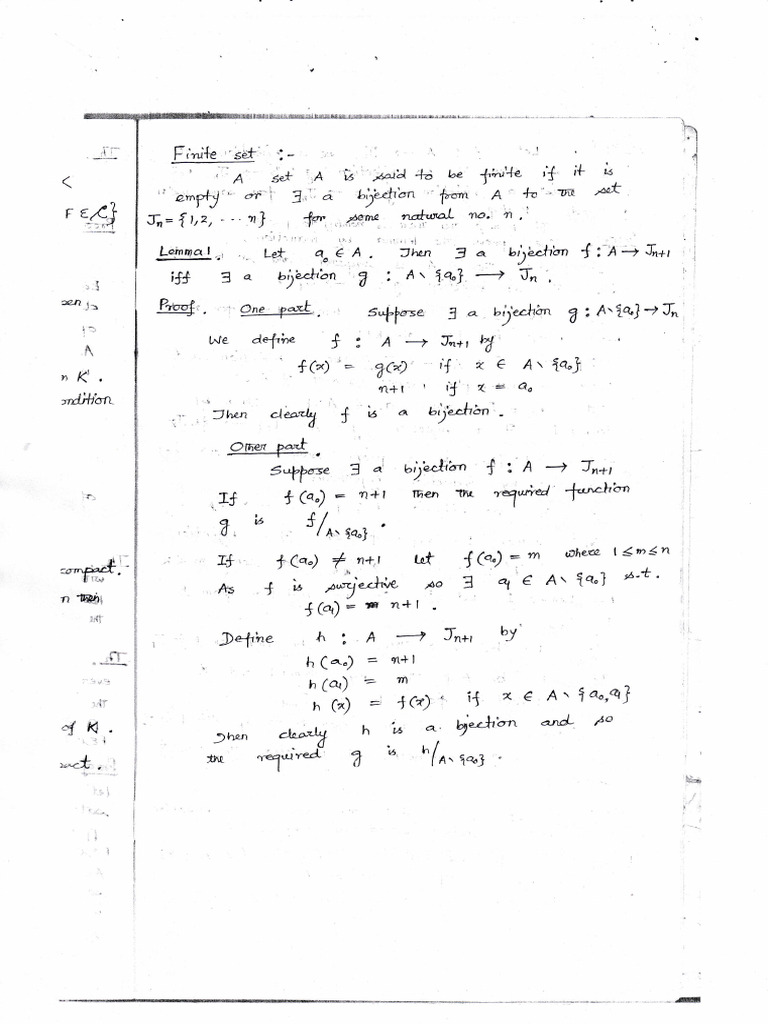 Finite set :-
A set A is said to be finite if it is
empty or ∃ a bijection from A to the set
Jn = {1,2, ... n} for some natural no. n.
Lemma 1. Let a₀ ∈ A. Then ∃ a bijection f : A → Jn+1
iff ∃ a bijection g : A∖{a₀} → Jn.
Proof. One part. Suppose ∃ a bijection g : A∖{a₀} → Jn
We define f : A → Jn+1 by
f(x) = g(x) if x ∈ A∖{a₀}
n+1 if x = a₀
Then clearly f is a bijection.
Other part.
Suppose ∃ a bijection f : A → Jn+1
If f(a₀) = n+1 then the required function
g is f/A∖{a₀}.
If f(a₀) ≠ n+1 let f(a₀) = m where 1 ≤ m ≤ n
As f is surjective so ∃ a₁ ∈ A∖{a₀} s.t.
f(a₁) = n+1.
Define h : A → Jn+1 by
h(a₀) = n+1
h(a₁) = m
h(x) = f(x) if x ∈ A∖{a₀,a₁}
Then clearly h is a bjection and so
the required g is h/A∖{a₀}.
<
F ∈ C}
n K'.
ondition
compact.
n then
of K.
act.